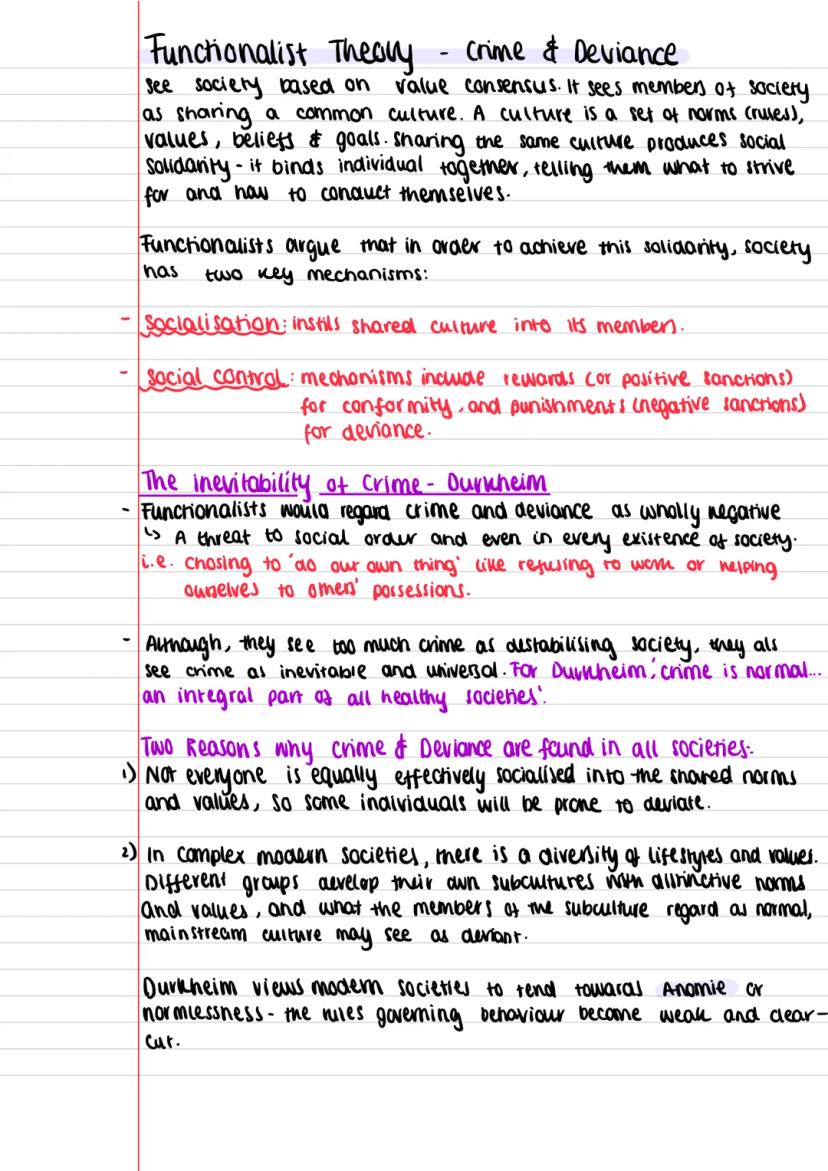 Functionalist Theory - Crime & Deviance
see society based on value consensus. It sees members of society
as sharing a common culture. A culture is a set of norms (rules),
values, beliefs & goals. Sharing the same culture produces social
solidarity - it binds individual together, telling them what to strive
for and how to conduct themselves.
Functionalists argue that in order to achieve this solidarity, society
has two key mechanisms:
- Socialisation: instils shared culture into its members.
- Social control: mechanisms include rewards (or positive sanctions)
for conformity, and punishments (negative sanctions)
for deviance.
The inevitability of Crime - Durkheim
- Functionalists would regard crime and deviance as wholly negative
↳ A threat to social order and even in every existence of society.
i.e. Chosing to 'do our own thing' like refusing to work or helping
ourselves to others' possessions.
- Although, they see too much crime as destabilising society, they als
see crime as inevitable and universal. For Durkheim, 'crime is normal...
an integral part of all healthy societies'.
Two Reasons why crime & Deviance are found in all societies:
1) Not everyone is equally effectively socialised into the shared norms
and values, so some individuals will be prone to deviate.
2) In complex modern societies, there is a diversity of lifestyles and values.
Different groups develop their own subcultures with distinctive norms
and values, and what the members of the subculture regard as normal,
mainstream culture may see as deviant.
Durkheim views modern societies to tend towards Anomie or
normlessness - the rules governing behaviour become weak and clear-
cut.